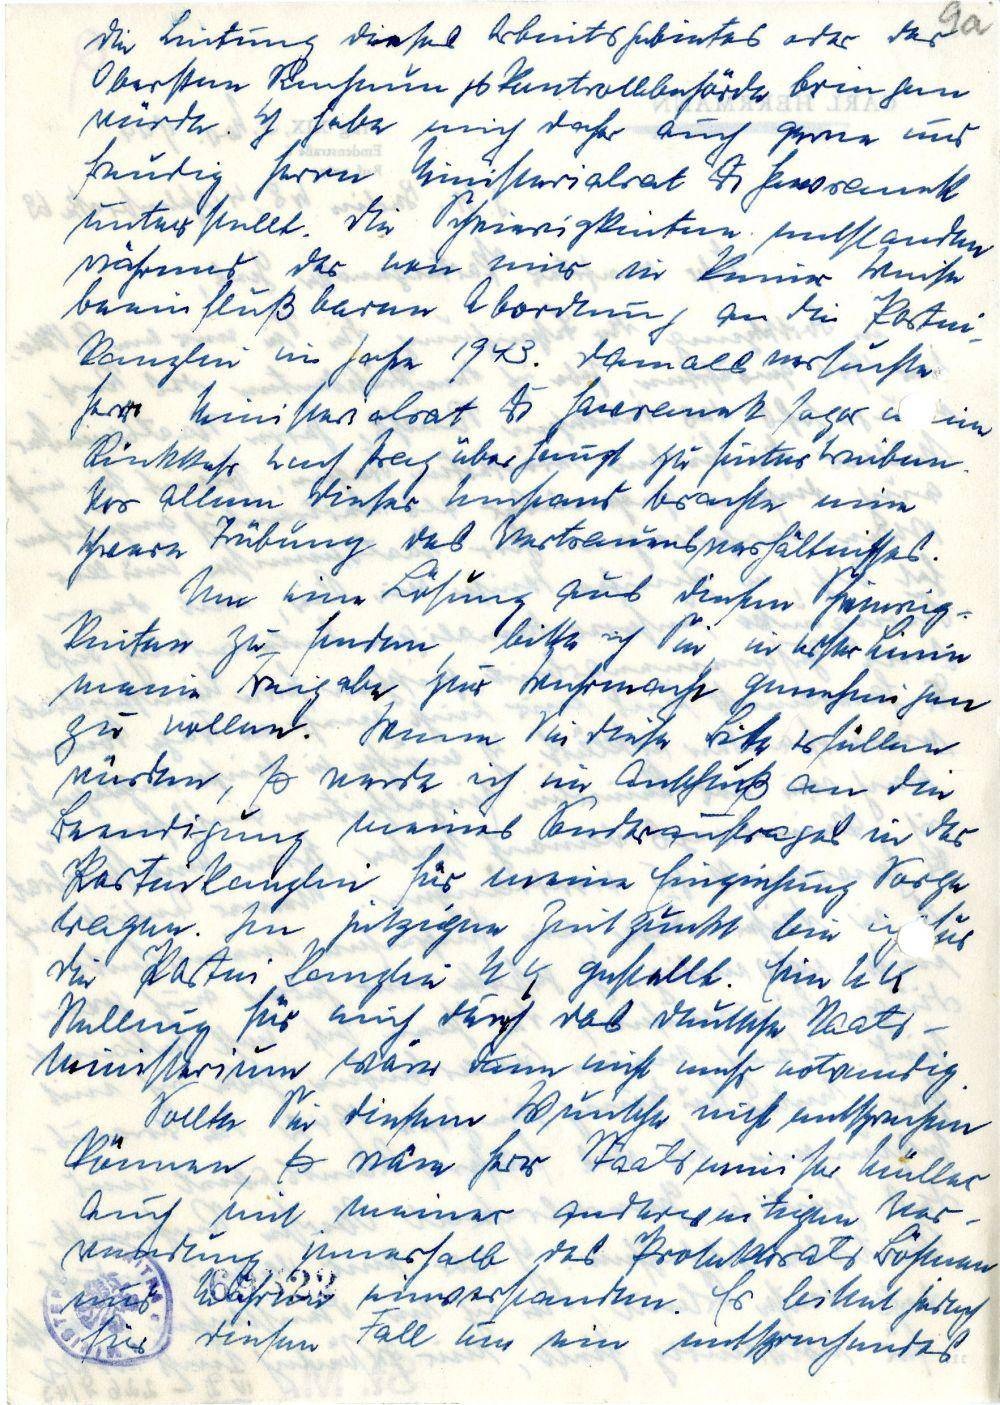 9a
die Leitung dieses Arbeitsgebietes oder der
Obersten Rechnungskontrollbehörde bringen
würde. Ich habe mich daher auch gerne und
freudig Herrn Ministerialrat Dr Havranek
unterstellt. Die Schwierigkeiten entstanden
während der von mir in keiner Weise
beeinflußbaren Abordnung an die Partei-
Kanzlei im Jahre 1943. Damals versuchte
Herr Ministerialrat Dr Havranek sogar meine
Rückkehr nach Prag überhaupt zu hintertreiben.
Vor allem dieser Umstand brachte eine
schwere Trübung des Vertrauensverhältnisses.
Um eine Lösung aus diesen Schwierig-
keiten zu finden, bitte ich Sie, in erster Linie
meine Freigabe zur Wehrmacht genehmigen
zu wollen. Wenn Sie diese Bitte erfüllen
würden, so werde ich im Anschluß an die
Beendigung meines Sonderauftrages in der
Parteikanzlei für meine Einziehung Sorge
tragen. Im jetzigen Zeitpunkt bin ich für
die Partei Kanzlei UK gestellt. Eine UK
Stellung für mich durch das deutsche Staats-
ministerium wäre dann nicht mehr notwendig.
Sollten Sie diesem Wunsche nicht entsprechen
können, so wäre Herr Staatsminister Müller
auch mit meiner anderweitigen Ver-
wendung innerhalb des Protektorats Böhmen
und Mähren einverstanden. Es bedarf jedoch
für diesen Fall um ein entsprechendes